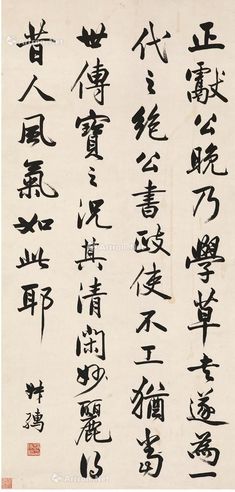 正獻公晚乃學草書遂為一
代之絕公書政使不工猶當
世傳寶之況其清閑妙麗得
昔人風氣如此耶